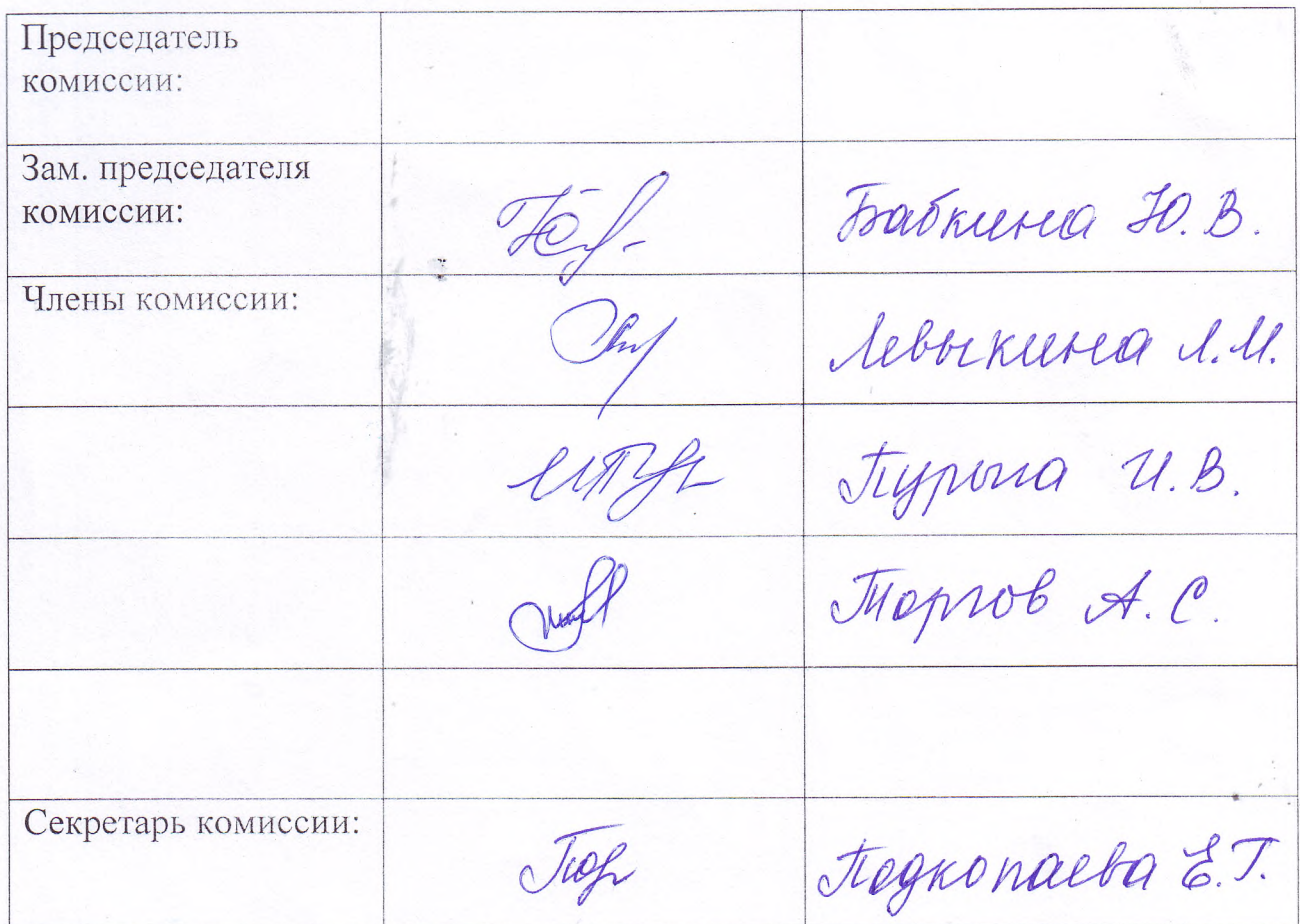 Председатель
комиссии:
Зам. председателя
комиссии:
Бабкина Ю. В.
Члены комиссии:
Левыкина Л.М.
Пурыга И.В.
Торгов А.С.
Секретарь комиссии:
Подкопаева Е.Г.